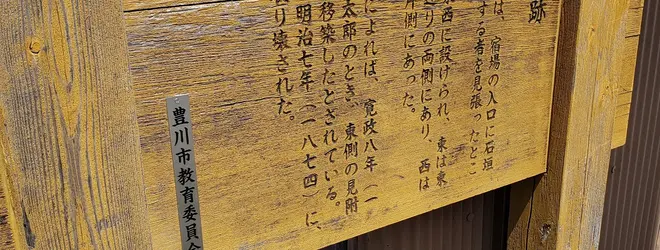 跡
は、宿場の入口に石垣
する者を見張ったとこ
東西に設けられ、東は東
辺りの両側にあり、西は
片側にあった。
によれば、寛政八年（一
太郎のとき、東側の見附
移築したとされている。
明治七年（一八七四）に、
取り壊された。
豊川市教育委員会